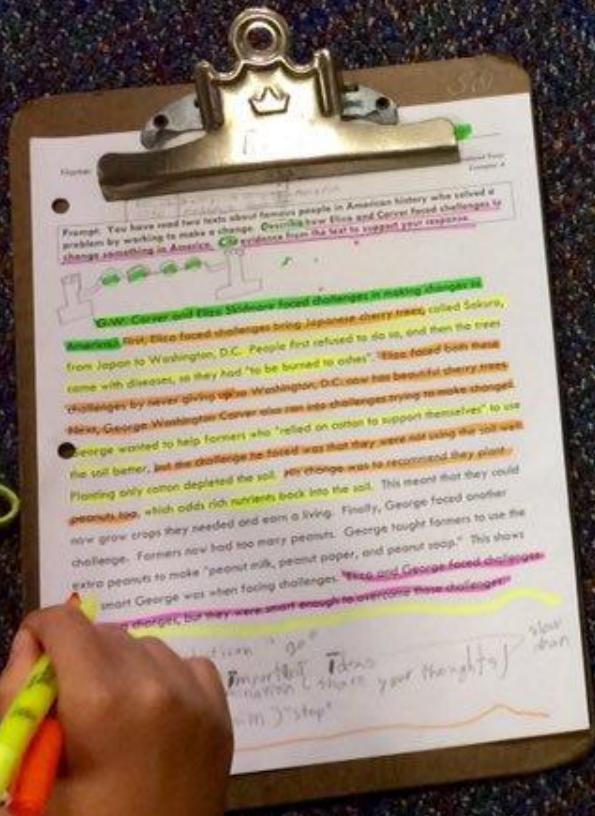 Name:
Prompt: You have read two texts about famous people in American history who solved a
problem by working to make a change. Describe how Eliza and Carver faced challenges to
change something in America. Cite evidence from the text to support your response.
G.W. Carver and Eliza Skidmore faced challenges in making changes to
America. First, Eliza faced challenges bring Japanese cherry trees, called Sakura,
from Japan to Washington, D.C. People first refused to do so, and then the trees
came with diseases, so they had "to be burned to ashes". Eliza faced both these
challenges by never giving up so Washington, D.C. now has beautiful cherry trees.
Next, George Washington Carver also ran into challenges trying to make changed.
George wanted to help farmers who "relied on cotton to support themselves" to use
the soil better, but the challenge he faced was that they were not using the soil well.
Planting only cotton depleted the soil. His change was to recommend they plant
peanuts too, which adds rich nutrients back into the soil. This meant that they could
now grow crops they needed and earn a living. Finally, George faced another
challenge. Farmers now had too many peanuts. George taught farmers to use the
extra peanuts to make "peanut milk, peanut paper, and peanut soap." This shows
smart George was when facing challenges. Eliza and George faced challenges
changes, but they were smart enough to overcome those challenges!
"go"
slow
down
Important Ideas
(share your thoughts)
) "stop"